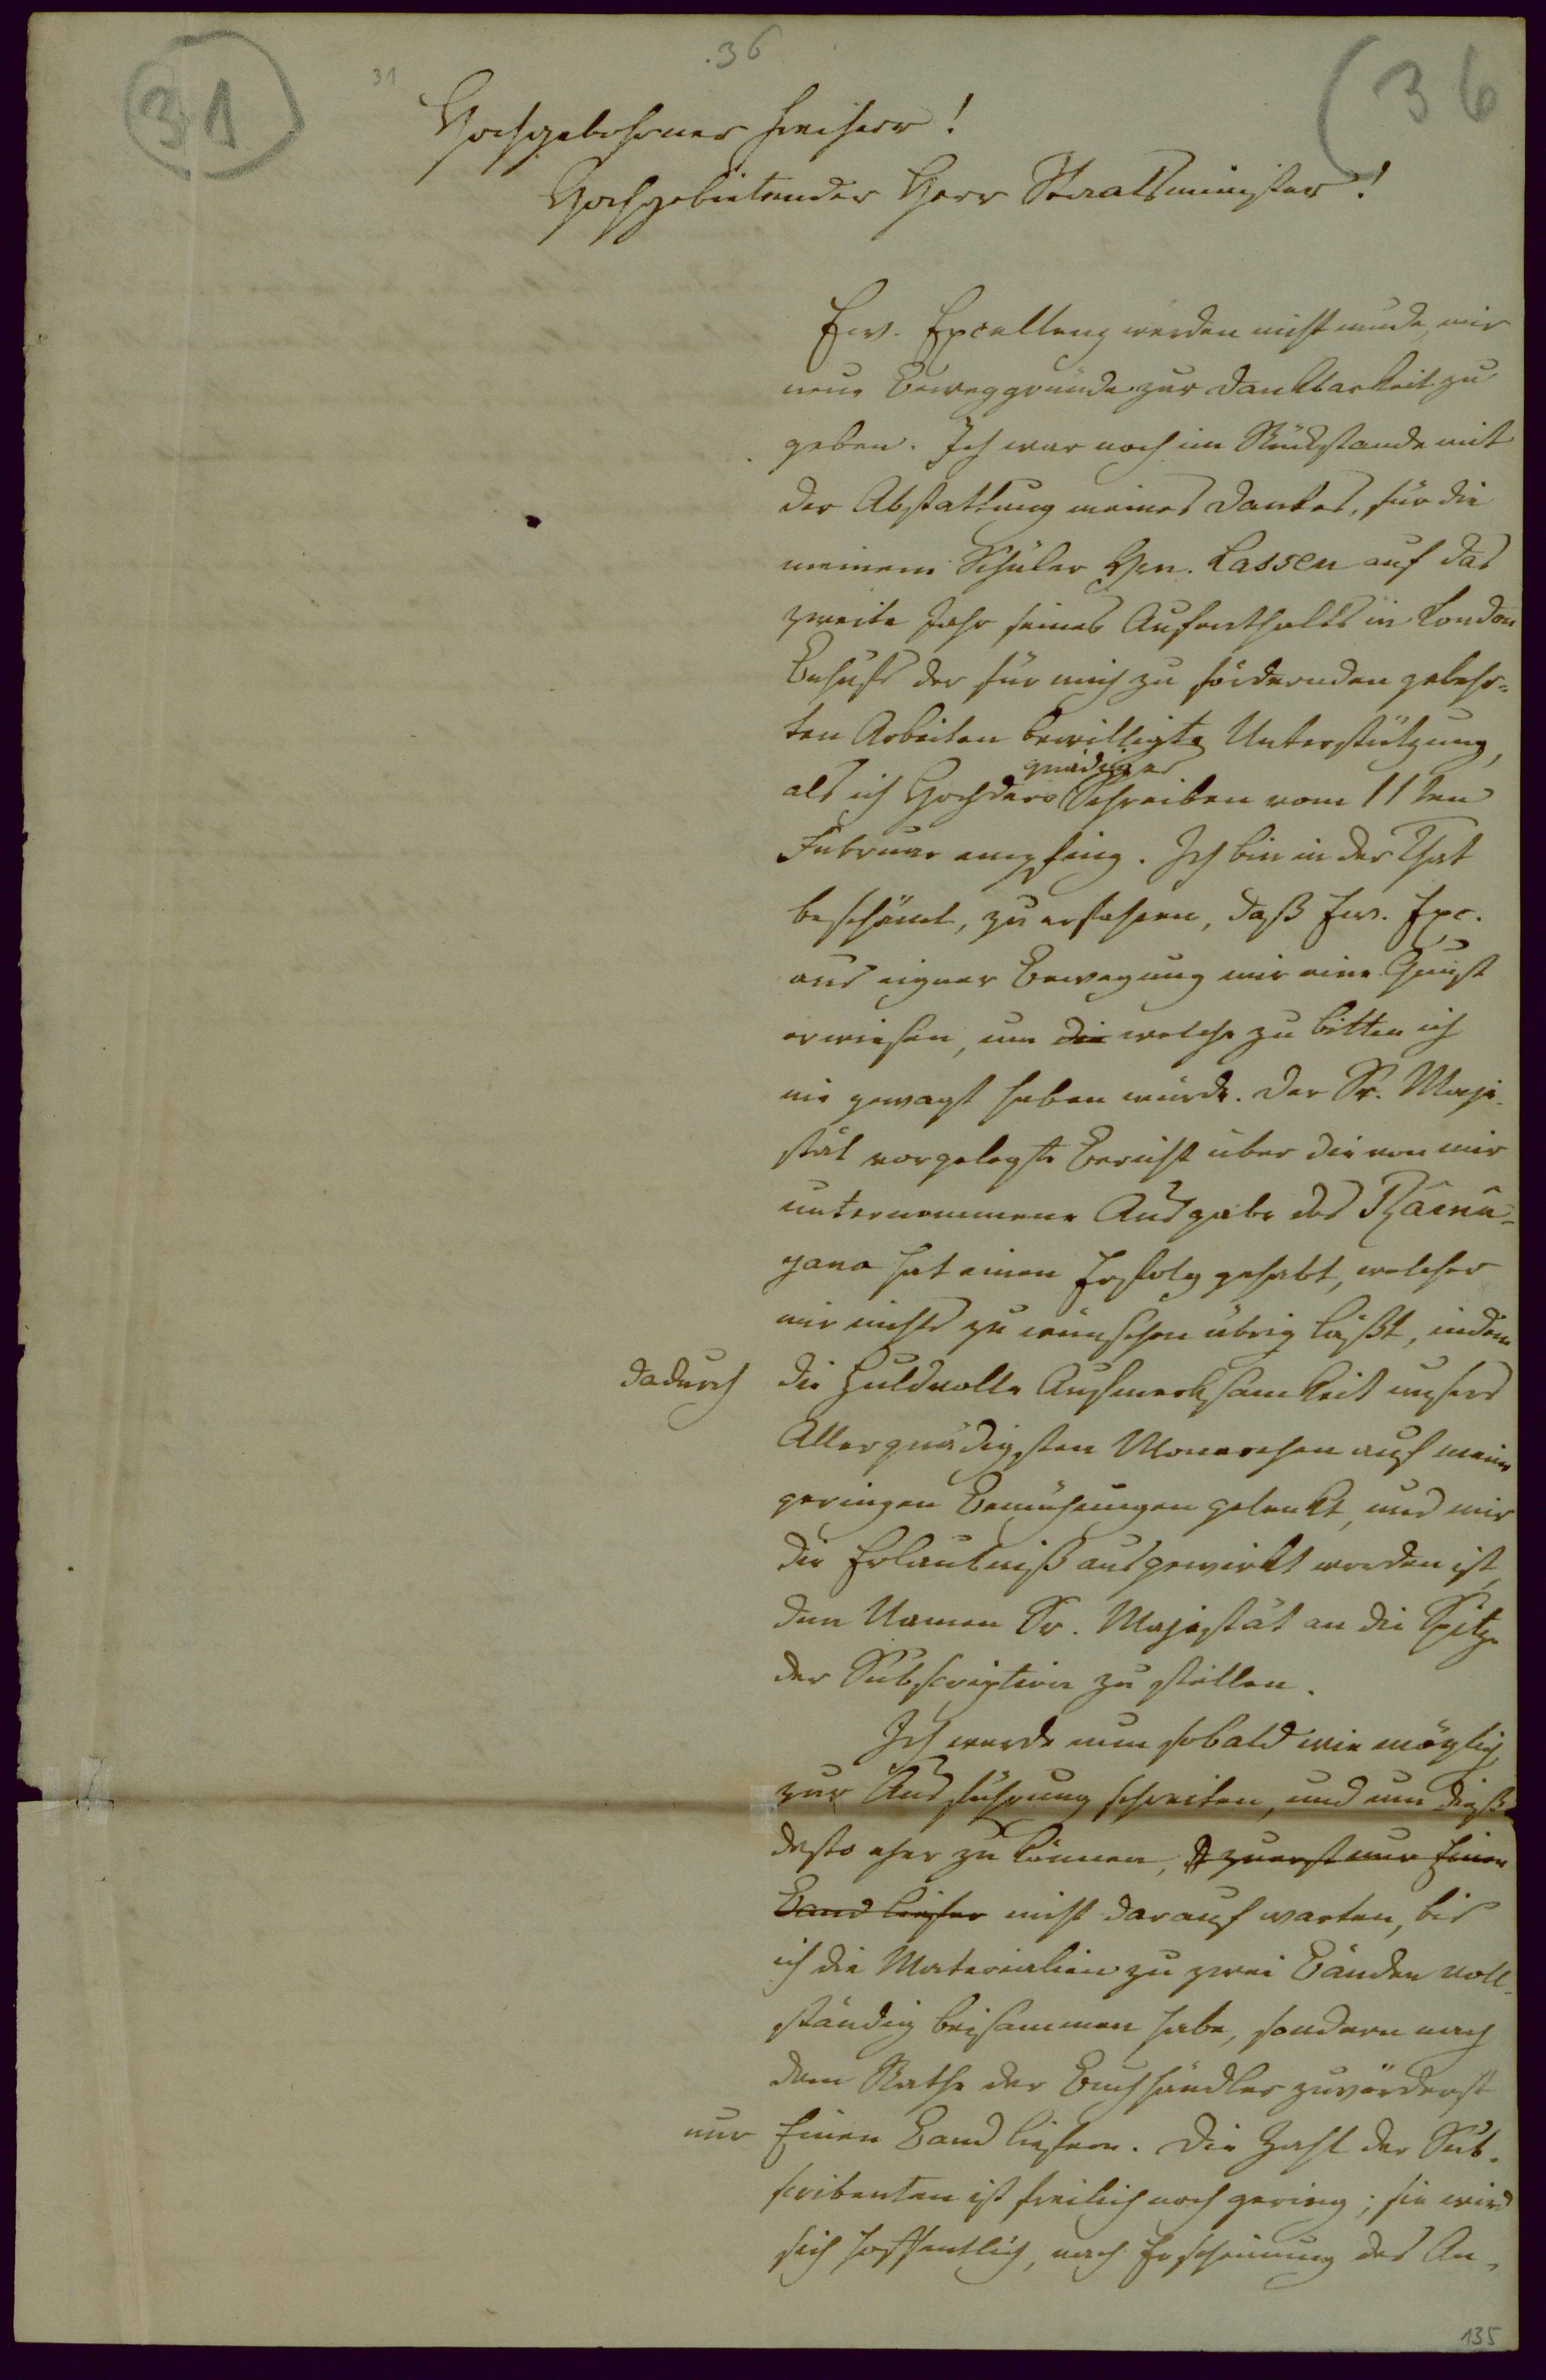 31
31
.36
(36
Hochgebohrner Freiherr!
Hochgebietender Herr Staatsminister!
Ew. Excellenz werden nicht müde, mir
neue Beweggründe zur Dankbarkeit zu
geben. Ich war noch im Rückstande mit
der Abstattung meines Dankes, für die
meinem Schüler Hrn. Lassen auf das
zweite Jahr seines Aufenthalts in London
Behufs der für mich zu fördernden gelehr=
ten Arbeiten bewilligte Unterstützung,
gnädiges
als ich Hochdero Schreiben vom 11ten
Februar empfing. Ich bin in der That
beschämt, zu ersehen, daß Ew. Exc.
aus eigner Bewegung mir eine Gunst
erwiesen, um die welche zu bitten ich
nie gewagt haben würde. Der Sr. Maje-
stät vorgelegte Bericht über die von mir
unternommene Ausgabe des Râmâ=
yana hat einen Erfolg gehabt, welcher
mir nichts zu wünschen übrig läßt, indem
dadurch die huldvolle Aufmerksamkeit unsers
Allergnädigsten Monarchen auf meine
geringen Bemühungen gelenkt, und mir
die Erlaubniß ausgewirkt worden ist,
den Namen Sr. Majestät an die Spitze
der Subscription zu stellen.
Ich werde nun sobald wie möglich
zur Ausführung schreiten, und um dieß
desto eher zu können, zuerst nur Einen
Band liefer nicht darauf warten, bis
ich die Materialien zu zwei Bänden voll-
ständig beisammen habe, sondern nach
dem Rathe der Buchhändler zuvörderst
nur Einen Band liefern. Die Zahl der Sub-
scribenten ist freilich noch gering; sie wird
sich hoffentlich, nach Erscheinung des An-
135